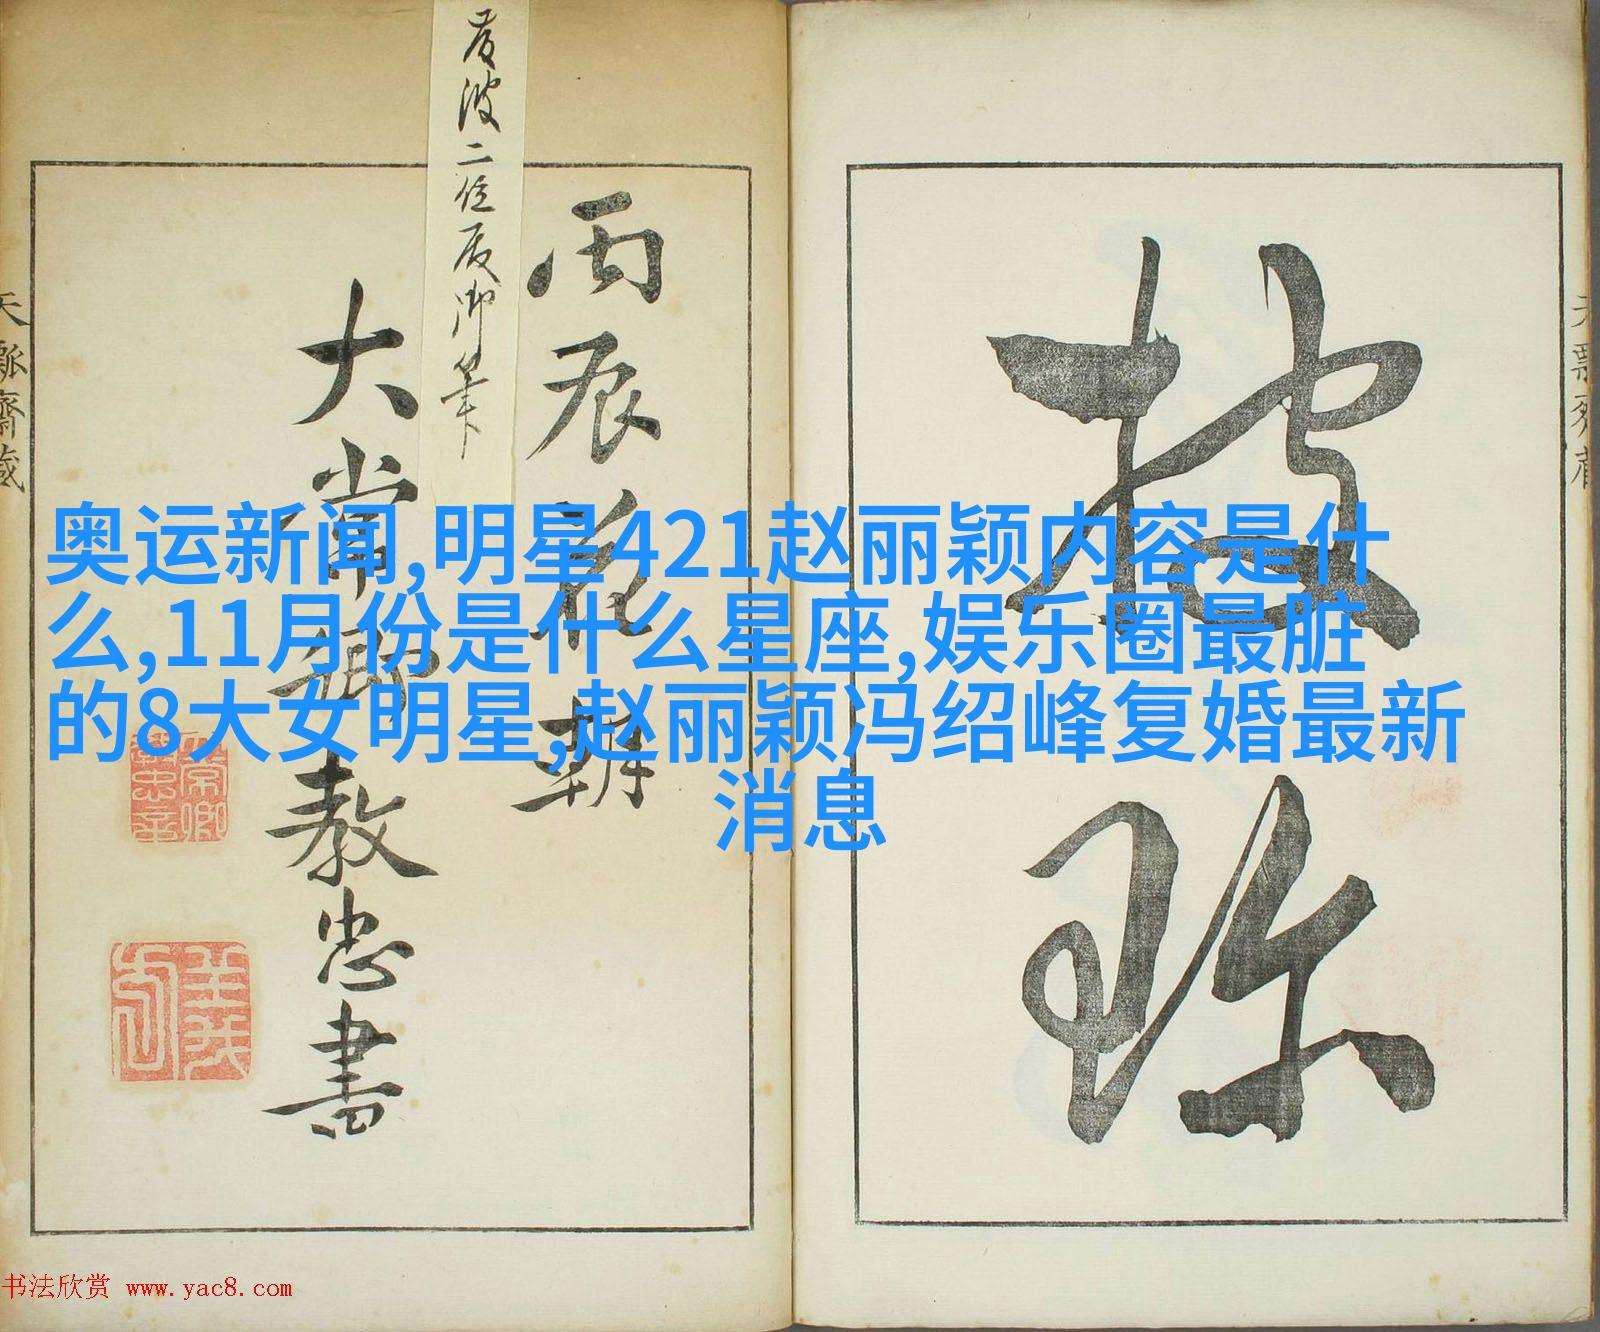 奥运新闻,明星421赵丽颖内容是什
么,11月份是什么星座,娱乐圈最脏
的8大女明星,赵丽颖冯绍峰复婚最新
消息
披
珍
丙辰花朝
大常卿教忠書
二位
筆
天瓶齋蔵
书法欣赏 www.yac8.com